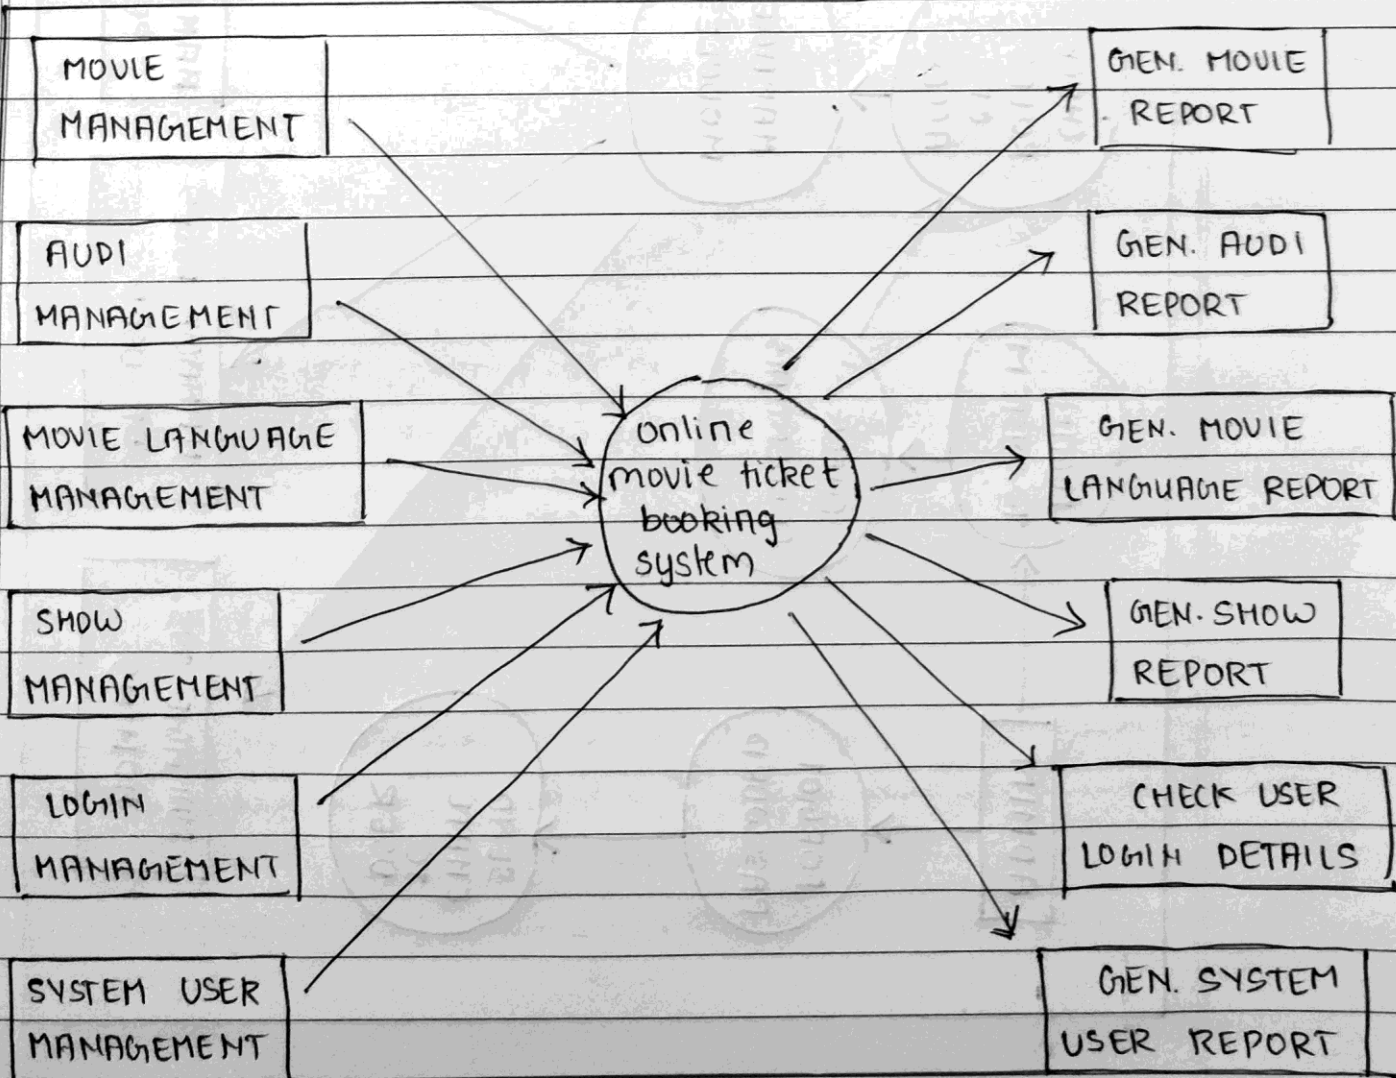 MOVIE
MANAGEMENT
AUDI
MANAGEMENT
MOVIE LANGUAGE
MANAGEMENT
SHOW
MANAGEMENT
LOGIN
MANAGEMENT
SYSTEM USER
MANAGEMENT
online
movie ticket
booking
system
GEN. MOVIE
REPORT
GEN. AUDI
REPORT
GEN. MOVIE
LANGUAGE REPORT
GEN. SHOW
REPORT
CHECK USER
LOGIN DETAILS
GEN. SYSTEM
USER REPORT